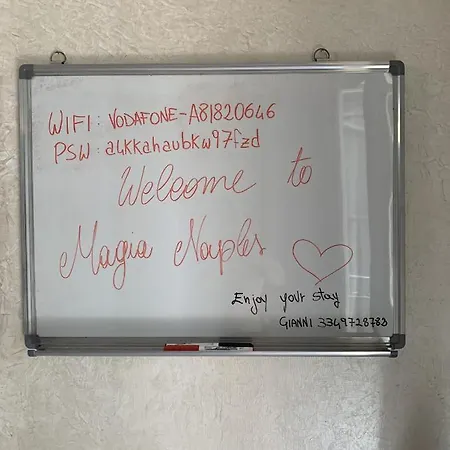 WIFI: VODAFONE-A81820646
PSW: a4kkahaubkw97fzd
Welcome to
Magia Naples
Enjoy your stay
GIANNI 3349728783